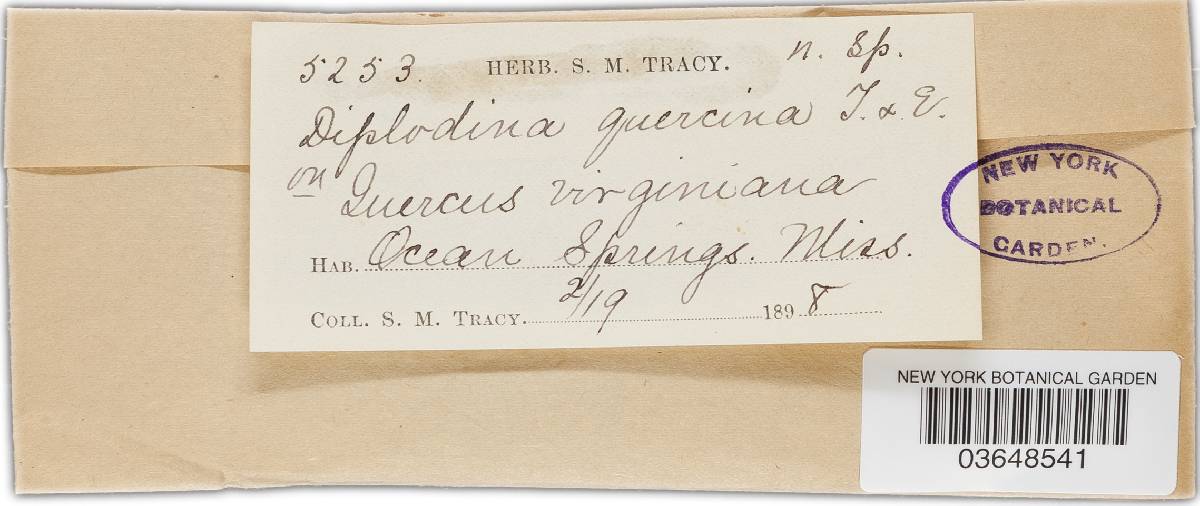 5253. HERB. S. M. TRACY. n. sp.
Diplodina quercina T. & E.
on Quercus virginiana
HAB. Ocean Springs. Miss.
COLL. S. M. TRACY. 2/19 1898
NEW YORK
BOTANICAL
GARDEN.
NEW YORK BOTANICAL GARDEN
03648541